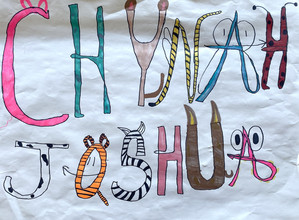 CHYNAH
JOSHUA